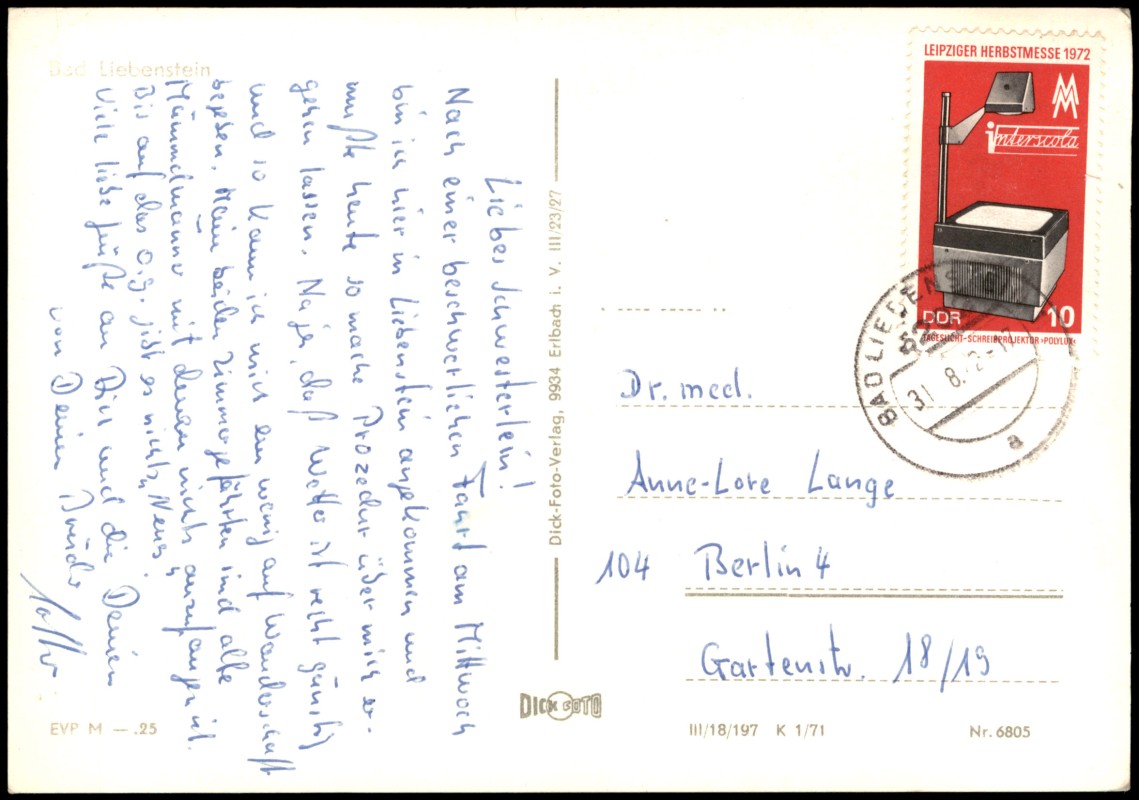 Bad Liebenstein
Liebes Schwesterlein!
Nach einer beschwerlichen Fahrt am Mittwoch
bin ich hier in Liebenstein angekommen und
mußte heute so manche Prozedur über mich er-
gehen lassen. Na ja, das Wetter ist recht günstig
und so kann ich mich ein wenig auf Wanderschaft
begeben. Meine beiden Zimmergefährten sind alte
Mümmelmänner mit denen nichts anzufangen ist.
Bis auf das o.g. gibt es nichts "Neues".
Viele liebe Grüße an Dich und die Deinen
von Deinem Bruder
EVP M — .25
Dick-Foto-Verlag, 9934 Erlbach i. V. III/23/27
DICK FOTO
LEIPZIGER HERBSTMESSE 1972
MM
interscola
DDR 10
TAGESLICHT-SCHREIBPROJEKTOR ›POLYLUX‹
BAD LIEBENS
31.8.72-17
a
Dr. med.
Anne-Lore Lange
104 Berlin 4
Gartenstr. 18/19
III/18/197 K 1/71
Nr. 6805